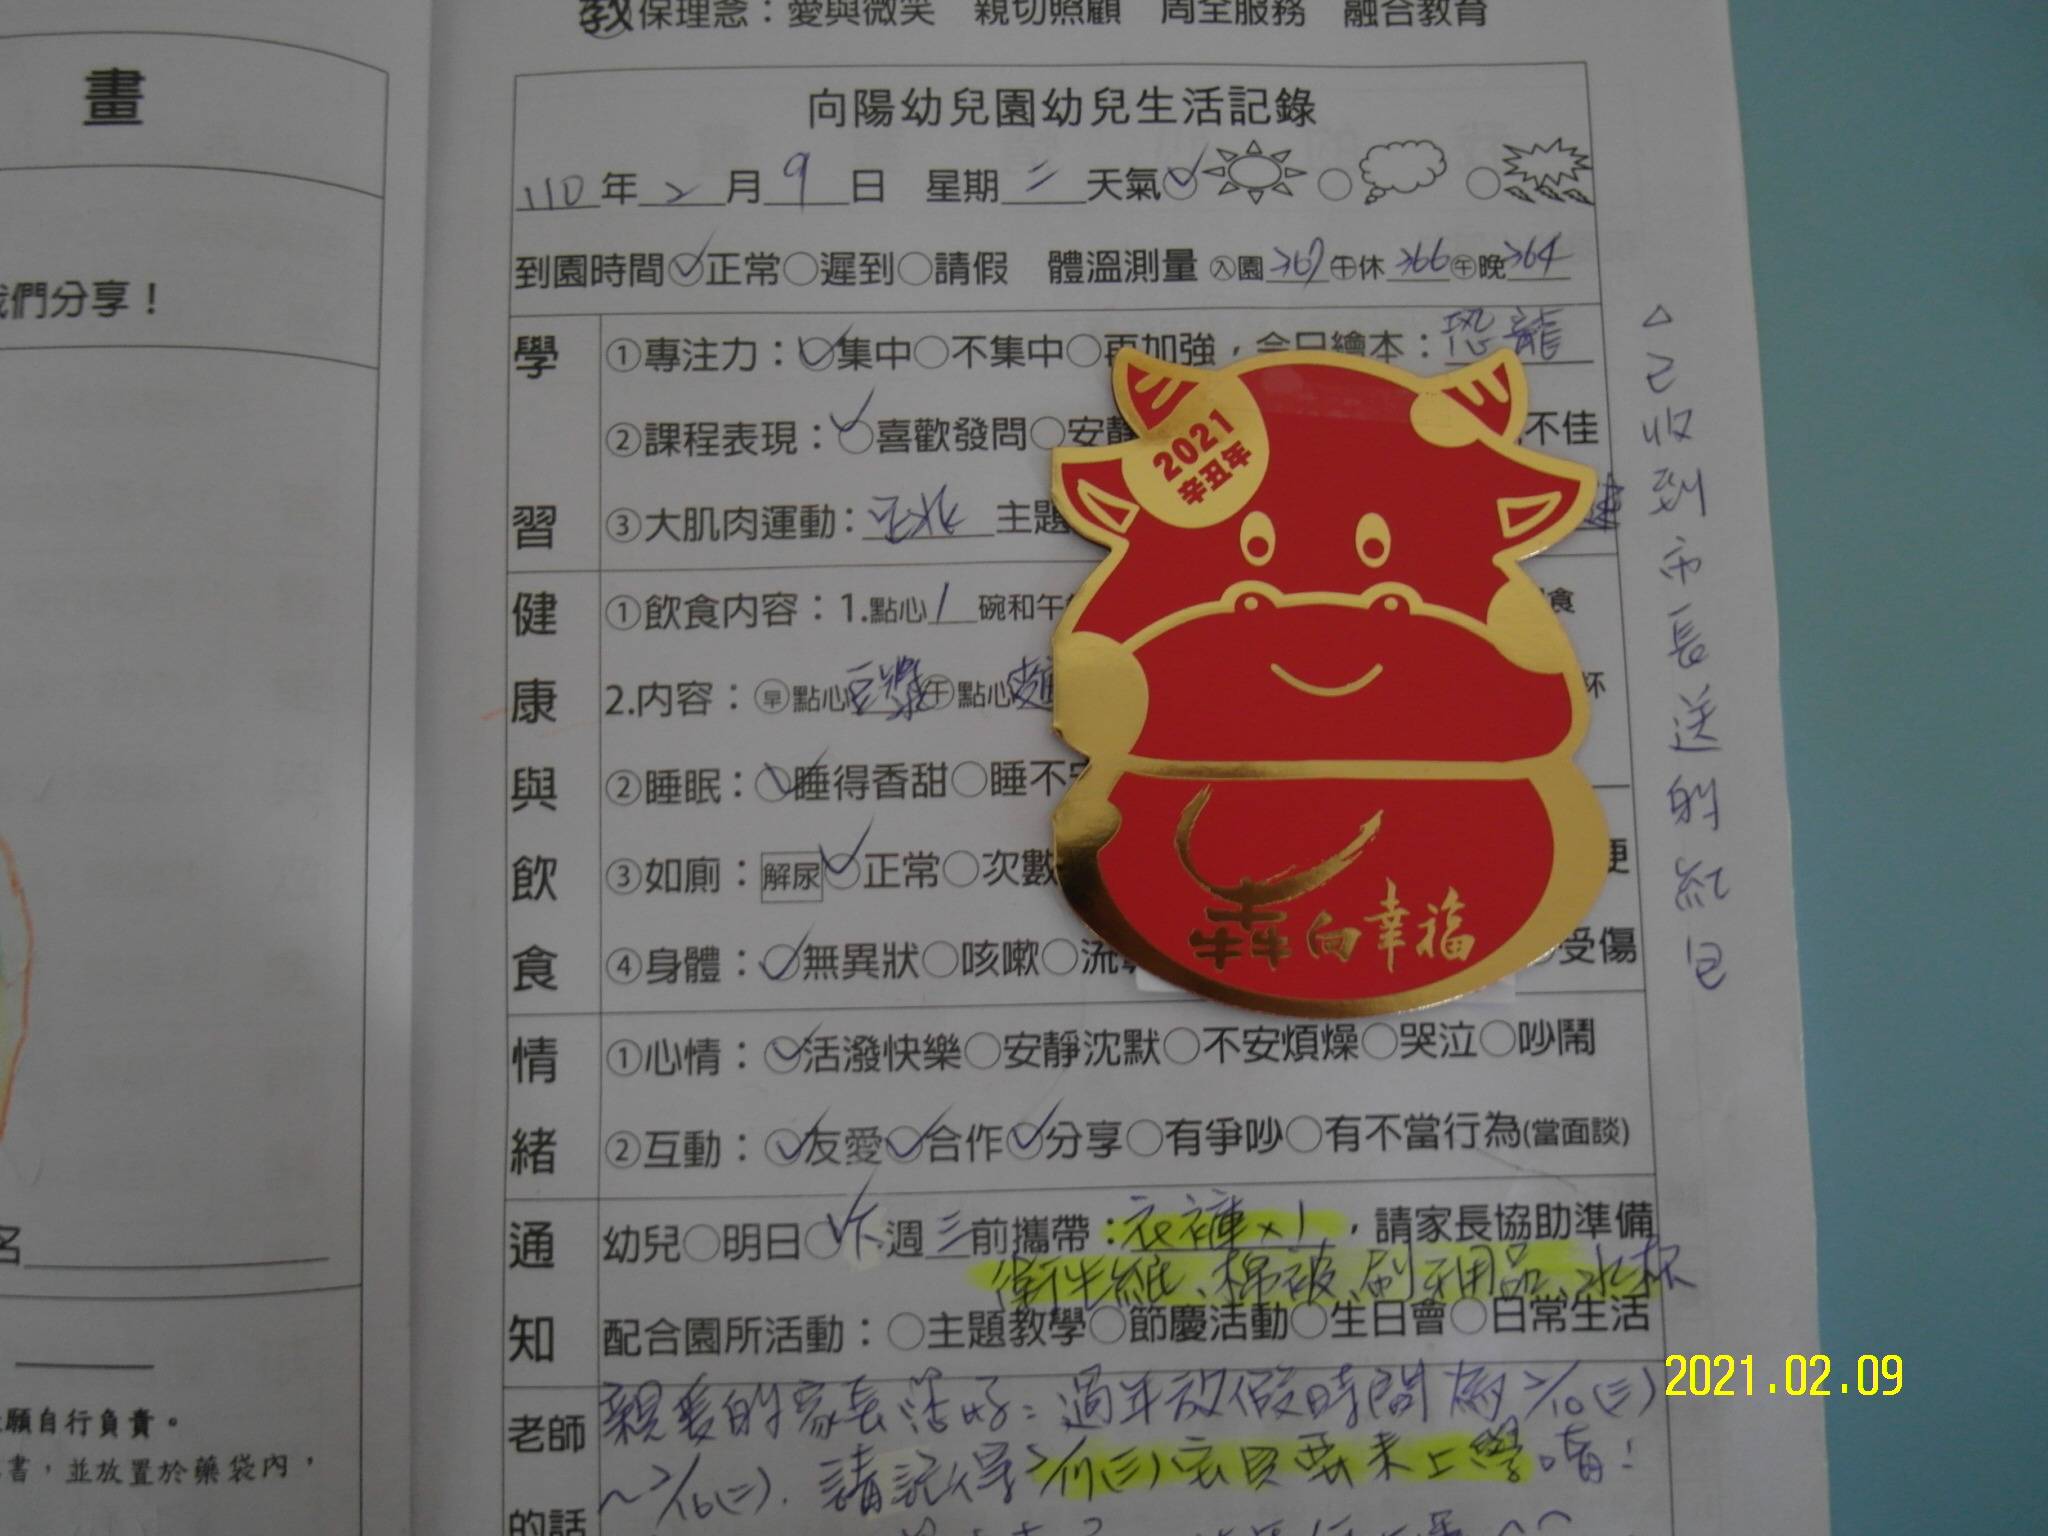 教保理念：愛與微笑　親切照顧　周全服務　融合教育
畫
我們分享！
名
願自行負責。
書，並放置於藥袋內，
向陽幼兒園幼兒生活記錄
110年2月9日　星期二天氣
到園時間○正常○遲到○請假　體溫測量 ㊅園367午休366午晚364
學習
①專注力：○集中○不集中○再加強，今日繪本：恐龍
②課程表現：○喜歡發問○安靜
不佳
③大肌肉運動：
主題
健康與飲食
①飲食內容：1.點心1碗和午
食
2.內容：早點心豆漿午點心麵
杯
②睡眠：○睡得香甜○睡不安
③如廁：解尿○正常○次數
便
④身體：○無異狀○咳嗽○流
受傷
2021
辛丑年
犇向幸福
△已收到市長送的紅包
情緒
①心情：○活潑快樂○安靜沈默○不安煩燥○哭泣○吵鬧
②互動：○友愛○合作○分享○有爭吵○有不當行為(當面談)
通知
幼兒○明日○下週三前攜帶：衣褲x1，請家長協助準備
衛生紙、棉被、刷牙用品、水杯
配合園所活動：○主題教學○節慶活動○生日會○日常生活
老師的話
親愛的家長您好：過年放假時間為2/10(三)
~2/16(二)．請記得2/17(三)寶貝要來上學唷！
2021.02.09